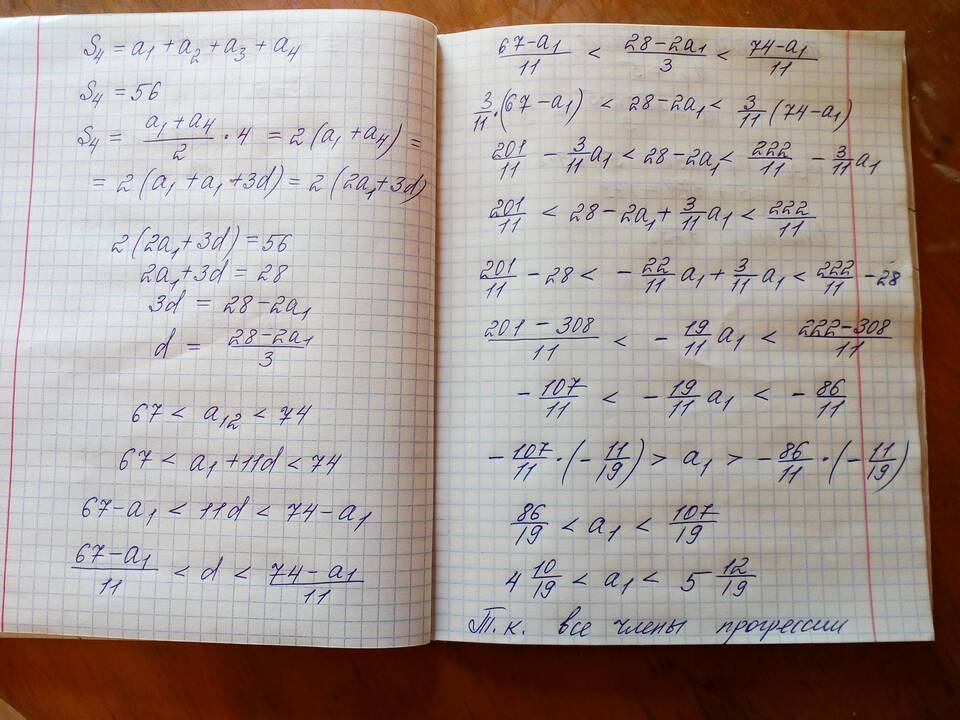 S₄ = a₁ + a₂ + a₃ + a₄
S₄ = 56
S₄ = (a₁ + a₄)/2 · 4 = 2(a₁ + a₄) =
= 2(a₁ + a₁ + 3d) = 2(2a₁ + 3d)
2(2a₁ + 3d) = 56
2a₁ + 3d = 28
3d = 28 - 2a₁
d = (28 - 2a₁)/3
67 < a₁₂ < 74
67 < a₁ + 11d < 74
67 - a₁ < 11d < 74 - a₁
(67 - a₁)/11 < d < (74 - a₁)/11
(67 - a₁)/11 < (28 - 2a₁)/3 < (74 - a₁)/11
3/11 · (67 - a₁) < 28 - 2a₁ < 3/11 (74 - a₁)
201/11 - 3/11 a₁ < 28 - 2a₁ < 222/11 - 3/11 a₁
201/11 < 28 - 2a₁ + 3/11 a₁ < 222/11
201/11 - 28 < -22/11 a₁ + 3/11 a₁ < 222/11 - 28
(201 - 308)/11 < -19/11 a₁ < (222 - 308)/11
-107/11 < -19/11 a₁ < -86/11
-107/11 · (-11/19) > a₁ > -86/11 · (-11/19)
86/19 < a₁ < 107/19
4 10/19 < a₁ < 5 12/19
Т.к. все члены прогрессии